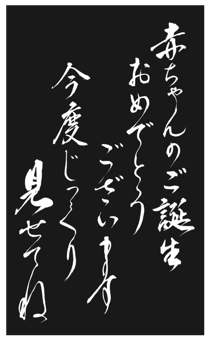 赤ちゃんのご誕生
おめでとう
ございます
今度じっくり
見せてね